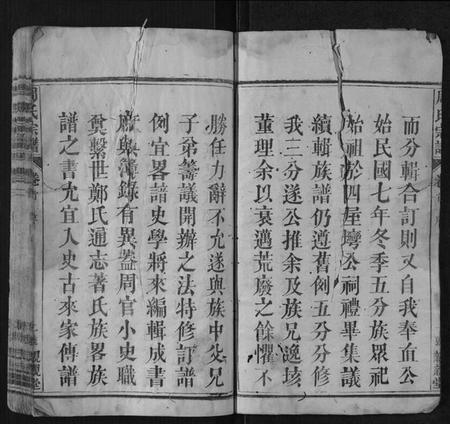 而分輯合訂則又自我奉直公
始民國七年冬季五分族眾祀
始祖於四屋灣公祠禮畢集議
續輯族譜仍遵舊例五分分修
我三分遂公推余及族兄逸垓
董理余以衰邁荒廢之餘懼不
勝任力辭不允遂與族中父兄
子弟籌議開辦之法特修訂譜
例宜畧諳史學將來編輯成書
庶與簿錄有異蓋周官小史職
奠繫世鄭氏通志著氏族畧族
譜之書允宜入史古來家傳譜
周氏宗譜
卷首